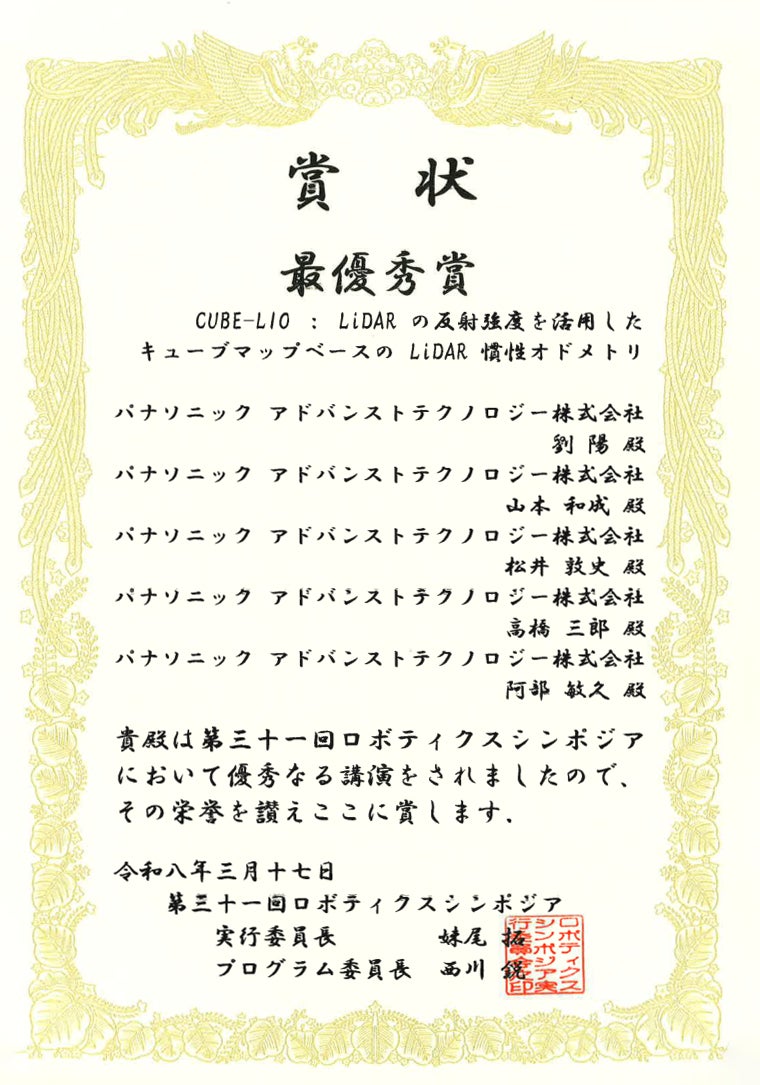 賞 状
最優秀賞
CUBE-LIO : LiDAR の反射強度を活用した
キューブマップベースの LiDAR 慣性オドメトリ
パナソニック アドバンストテクノロジー株式会社
劉 陽 殿
パナソニック アドバンストテクノロジー株式会社
山本 和成 殿
パナソニック アドバンストテクノロジー株式会社
松井 敦史 殿
パナソニック アドバンストテクノロジー株式会社
高橋 三郎 殿
パナソニック アドバンストテクノロジー株式会社
阿部 敏久 殿
貴殿は第三十一回ロボティクスシンポジア
において優秀なる講演をされましたので、
その栄誉を讃えここに賞します.
令和八年三月十七日
第三十一回ロボティクスシンポジア
実行委員長 妹尾 拓
プログラム委員長 西川 鋭
ロボティクス
シンポジア実
行委員会之印